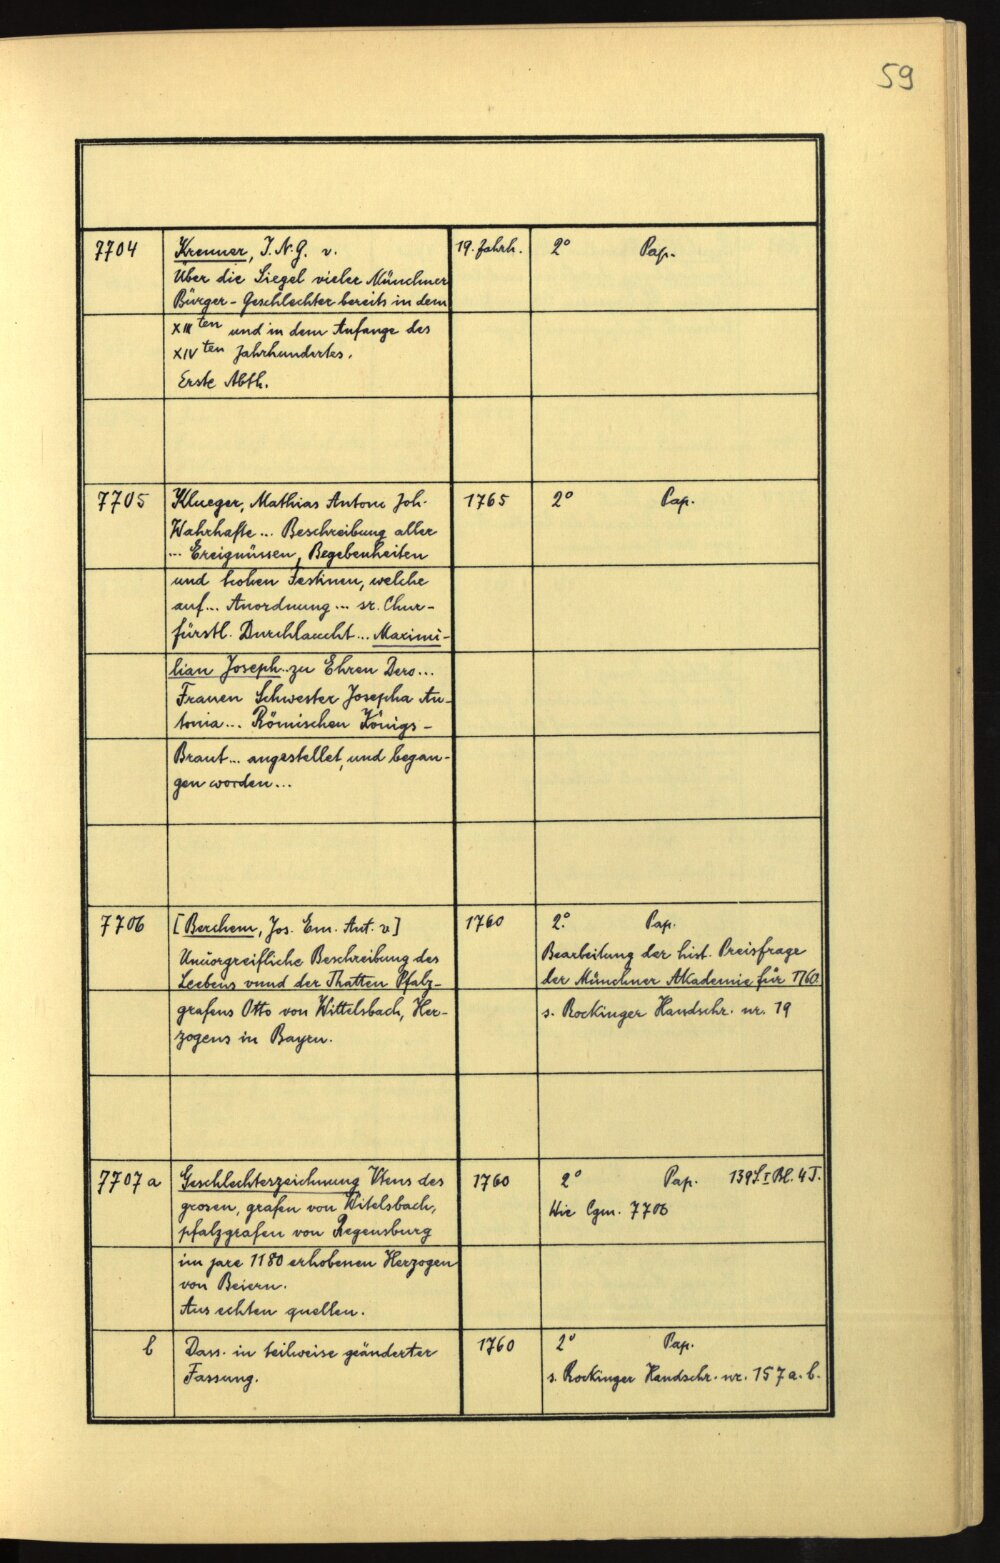 59
7704 Krenner, J. N. G. v. 19. Jahrh. 2° Pap.
Über die Siegel vieler Münchner
Bürger-Geschlechter bereits in dem
XIII ten und in dem Anfange des
XIV ten Jahrhundertes.
Erste Abth.
7705 Klueger, Mathias Anton Joh. 1765 2° Pap.
Wahrhafte ... Beschreibung aller
... Ereignüssen, Begebenheiten
und hohen Festinen, welche
auf ... Anordnung ... sr. Chur-
fürstl. Durchlaucht ... Maximi-
lian Joseph .. zu Ehren Dero ...
Frauen Schwester Josepha An-
tonia ... Römischen Königs-
Braut ... angestellet, und began-
gen worden ...
7706 [Berchem, Jos. Em. Ant. v] 1760 2° Pap.
Unvorgreifliche Beschreibung des
Leebens vnnd der Thatten Pfalz-
grafens Otto von Wittelsbach, Her-
zogens in Bayrn.
Bearbeitung der hist. Preisfrage
der Münchner Akademie für 1760.
s. Rockinger Handschr. nr. 19
7707 a Geschlechterzeichnung Vtens des 1760 2° Pap. 139 S. I Bl. 4 T.
grosen, grafen von Witelsbach,
pfalzgrafen von Regensburg
im jare 1180 erhobenen Herzogen
von Beiern.
Aus echten quellen.
Wie Cgm. 7706
b Dass. in teilweise geänderter 1760 2° Pap.
Fassung.
s. Rockinger Handschr. nr. 157 a. b.